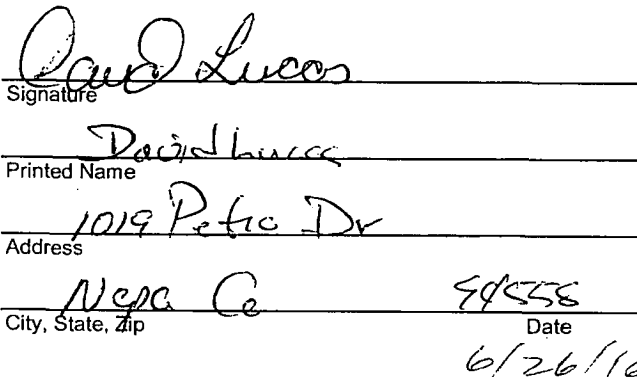 David Lucas
Signature
David Lucas
Printed Name
1019 Petra Dr
Address
Napa Ca 94558
City, State, Zip Date
6/26/16